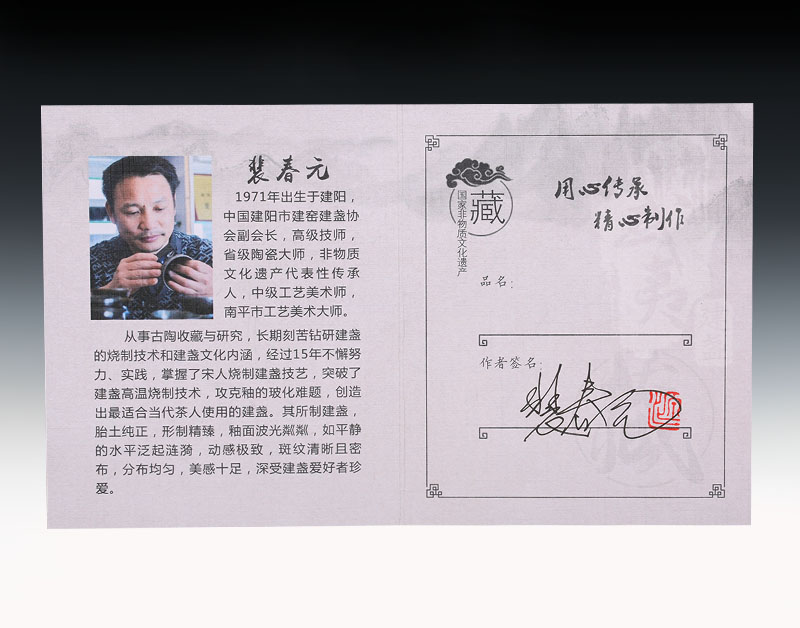 裴春元
1971年出生于建阳，
中国建阳市建窑建盏协
会副会长，高级技师，
省级陶瓷大师，非物质
文化遗产代表性传承
人，中级工艺美术师，
南平市工艺美术大师。
从事古陶收藏与研究，长期刻苦钻研建盏
的烧制技术和建盏文化内涵，经过15年不懈努
力、实践，掌握了宋人烧制建盏技艺，突破了
建盏高温烧制技术，攻克釉的玻化难题，创造
出最适合当代茶人使用的建盏。其所制建盏，
胎土纯正，形制精臻，釉面波光粼粼，如平静
的水平泛起涟漪，动感极致，斑纹清晰且密
布，分布均匀，美感十足，深受建盏爱好者珍
爱。
藏
国家非物质文化遗产
用心传承
精心制作
品名：
作者签名：
裴春元